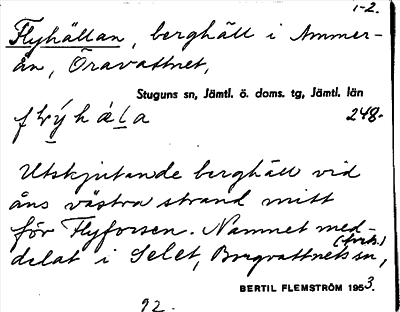 1-2.
Flyhällan, berghäll i Ammer-
ån, Öravattnet,
Stuguns sn, Jämtl. ö. doms. tg, Jämtl. län
248.
Utskjutande berghäll vid
åns västra strand mitt
för Flyforsen. Namnet med-
delat i Selet, Borgvattnets sn,
BERTIL FLEMSTRÖM 1953.
92.